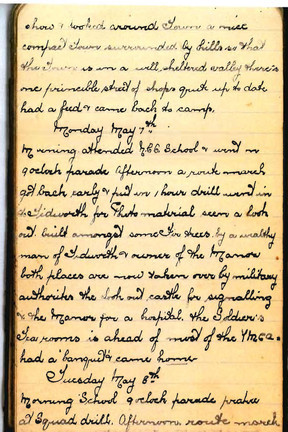 show & looked around Town a nice
compact Town surrounded by hills so that
the Town is in a well sheltered vally there's
one principle street of shops quite up to date
had a feed & came back to camp.
Monday May 7th
Morning attended School & went in
9 oclock parade Afternoon a route march
got back early & put in 1 hour drill went in
to Tidworth for Photo material seen a look
out built amongst some Fir trees by a wealthy
man of Tidworth & owner of the Manor
both places are now taken over by military
authorites the look out castle for signalling
& the Manor for a hospital. the Soldier's
Tea rooms is ahead of most of the YMCA.
had a banquet & came home
Tuesday May 8th
Morning School 9 oclock parade
at Squad drill. Afternoon route march